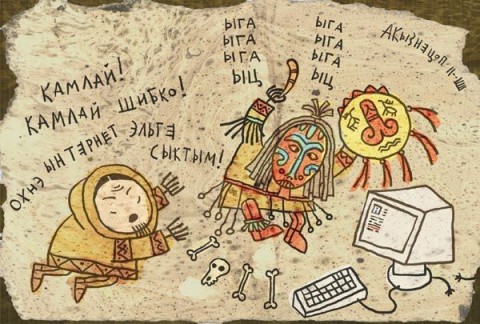 КАМЛАЙ!
КАМЛАЙ ШИБКО!
ОХНЭ ЫНТЭРНЕТ ЭЛЬГЕ
СЫКТЫМ!
ЫГА
ЫГА
ЫГА
ЫЦ
ЫГА
ЫГА
ЫГА
ЫЦ